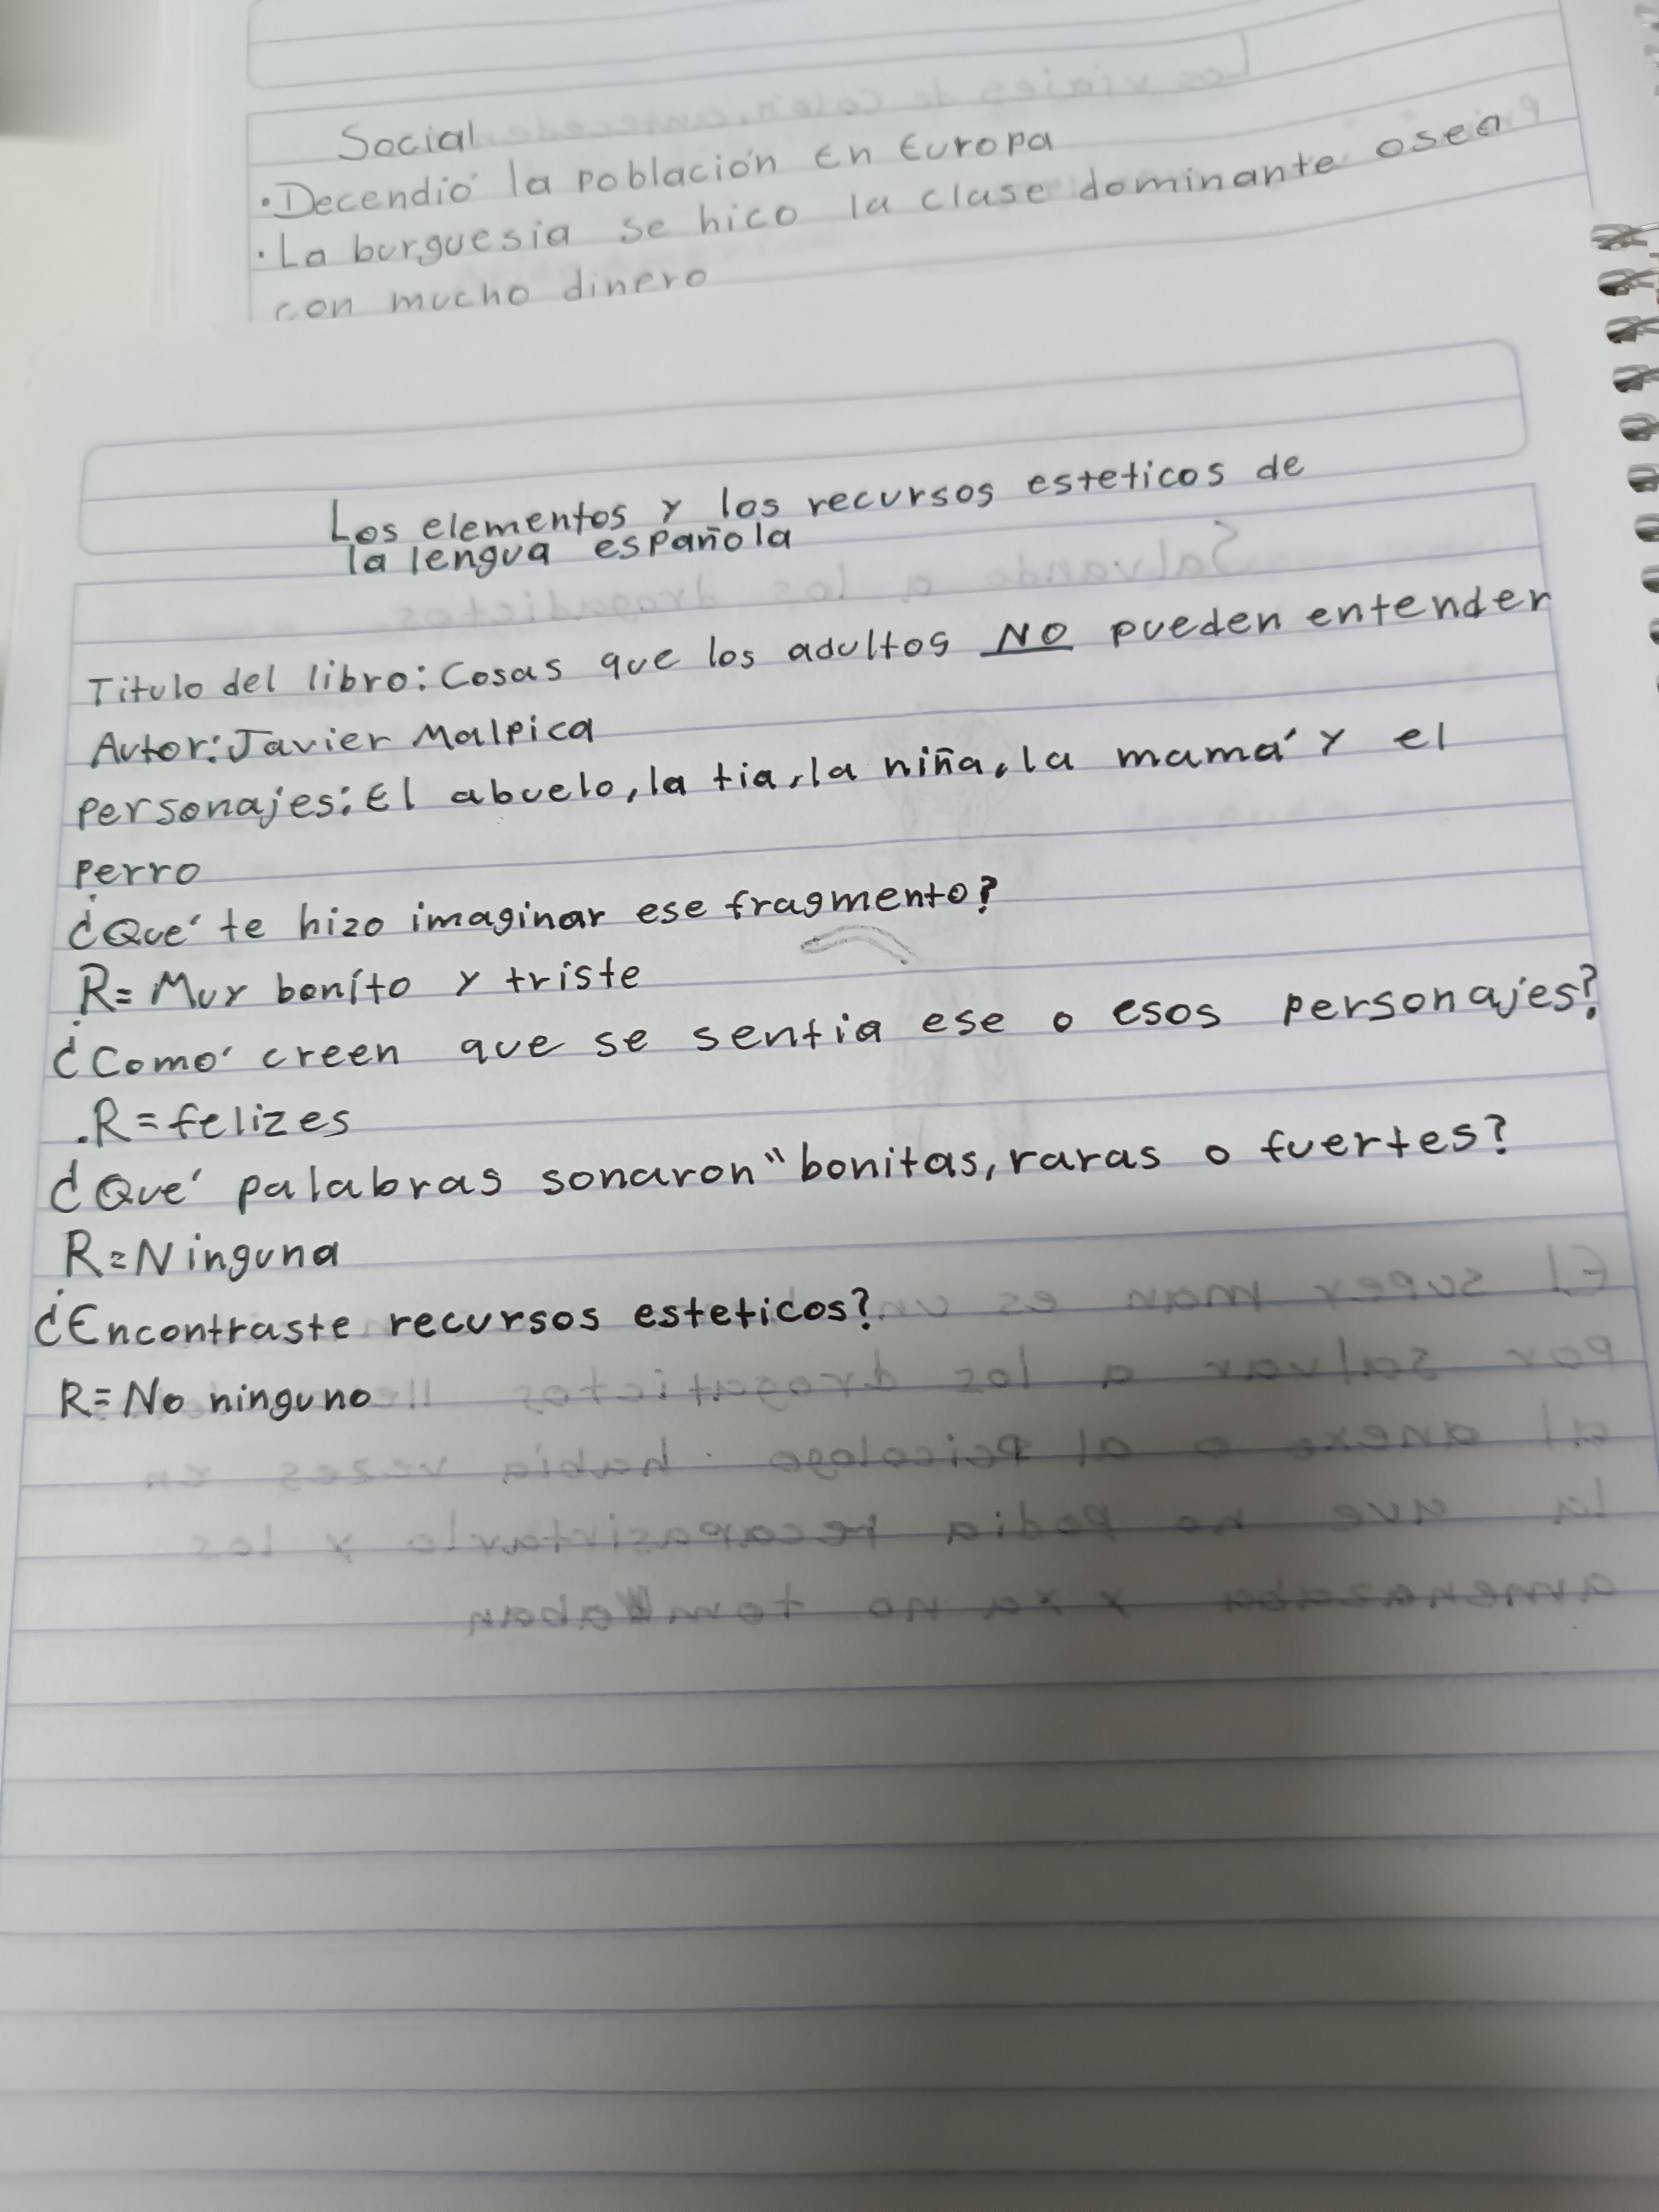 Social
• Decendió la población en Europa
• La burguesia se hico la clase dominante osea
con mucho dinero
Los elementos y los recursos esteticos de
la lengua española
Titulo del libro: Cosas que los adultos NO pueden entender
Autor: Javier Malpica
Personajes: El abuelo, la tia, la niña, la mamá y el
perro
¿Qué te hizo imaginar ese fragmento?
R= Muy bonito y triste
¿Comó creen que se sentia ese o esos personajes?
.R= felizes
¿Qué palabras sonaron "bonitas, raras o fuertes?
R= Ninguna
¿Encontraste recursos esteticos?
R= No ninguno